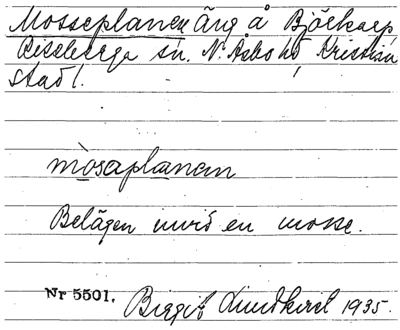 Mosseplanen äng å Björkarp
Riseberga sn. N. Åsbo hd Kristian
stad l.
mosaplanan
Belägen invid en mosse.
Nr 5501. Birgit Lundkvist 1935.